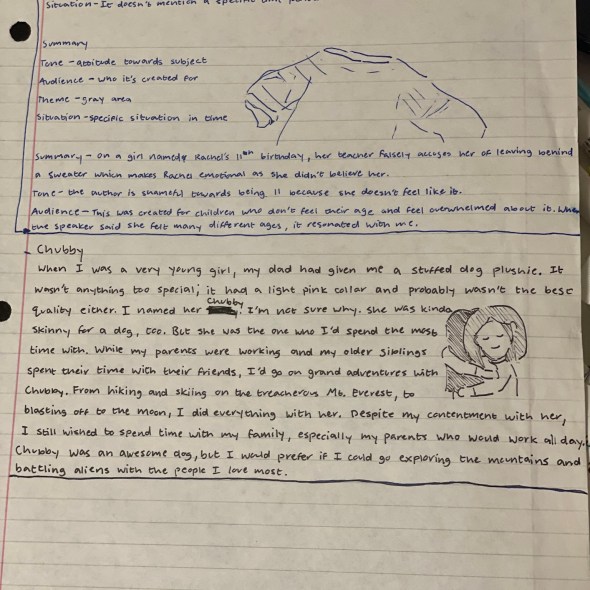 Situation - It doesn't mention a specific time
Summary
Tone - attitude towards subject
Audience - who it's created for
Theme - gray area
Situation - specific situation in time
Summary - on a girl named Rachel's 11th birthday, her teacher falsely accuses her of leaving behind
a sweater which makes Rachel emotional as she didn't believe her.
Tone - the author is shameful towards being 11 because she doesn't feel like it.
Audience - This was created for children who don't feel their age and feel overwhelmed about it. When
the speaker said she felt many different ages, it resonated with me.
Chubby
When I was a very young girl, my dad had given me a stuffed dog plushie. It
wasn't anything too special; it had a light pink collar and probably wasn't the best
quality either. I named her Chubby. I'm not sure why. She was kinda
skinny for a dog, too. But she was the one who I'd spend the most
time with. While my parents were working and my older siblings
spent their time with their friends, I'd go on grand adventures with
Chubby. From hiking and skiing on the treacherous Mt. Everest, to
blasting off to the moon, I did everything with her. Despite my contentment with her,
I still wished to spend time with my family, especially my parents who would work all day.
Chubby was an awesome dog, but I would prefer if I could go exploring the mountains and
battling aliens with the people I love most.